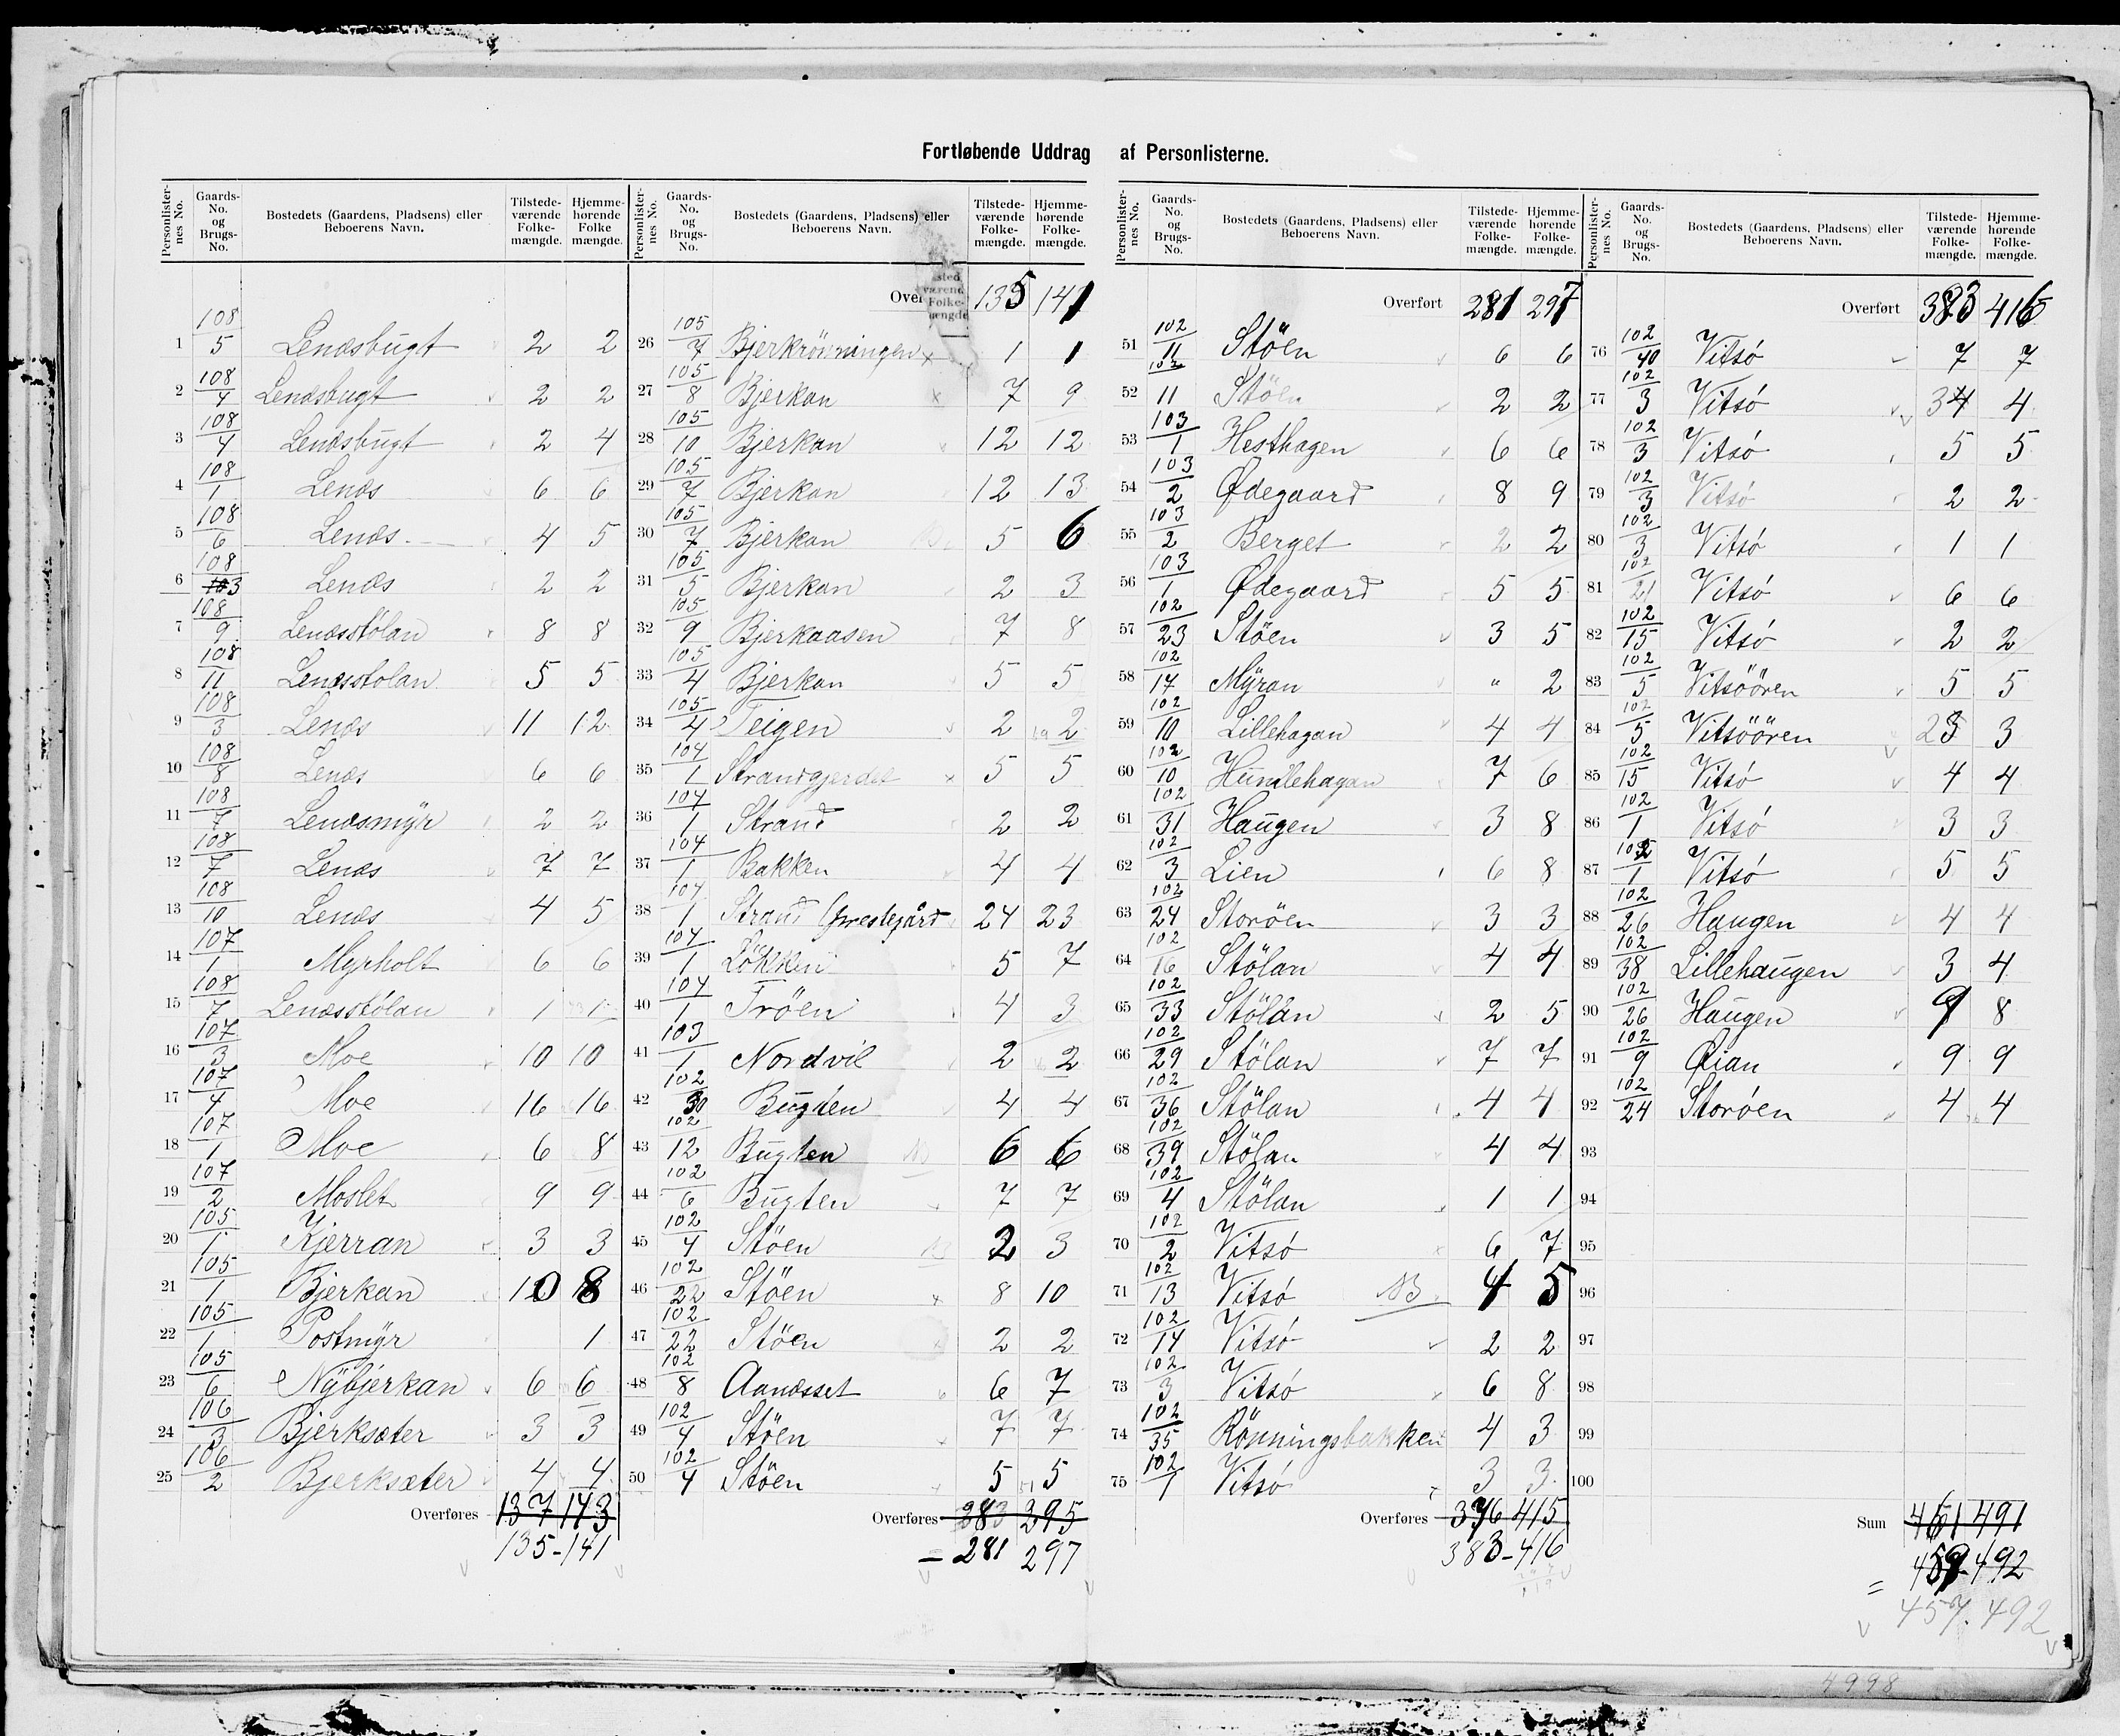 Fortløbende Uddrag af Personlisterne.
Personlisternes No. Gaards-No. og Brugs-No. Bostedets (Gaardens, Pladsens) eller Beboerens Navn. Tilstedeværende Folkemængde. Hjemmehørende Folkemængde.
1 108/5 Lenæsbugt 2 2
2 108/4 Lenæsbugt 2 2
3 108/4 Lenæsbugt 2 4
4 108/1 Lenæs 6 6
5 108/6 Lenæs 4 5
6 108/3 Lenæs 2 2
7 108/9 Lenæsstölan 8 8
8 108/11 Lenæsstolan 5 5
9 108/3 Lenæs 11 12
10 108/8 Lenæs 6 6
11 108/7 Lenæsmyr 2 2
12 108/7 Lenæs 7 7
13 108/10 Lenæs 4 5
14 107/1 Myrholt 6 6
15 108/7 Lenæsstölan 1 1
16 107/3 Moe 10 10
17 107/4 Moe 16 16
18 107/1 Moe 6 8
19 107/2 Moslet 9 9
20 105/1 Kjerran 3 3
21 105/1 Bjerkan 10 8
22 105/1 Postmyr 1
23 105/6 Nybjerkan 6 6
24 106/3 Bjerksæter 3 3
25 106/2 Bjerksæter 4 4
Overføres 137 143
135-141
Personlisternes No. Gaards-No. og Brugs-No. Bostedets (Gaardens, Pladsens) eller Beboerens Navn. Tilstedeværende Folkemængde. Hjemmehørende Folkemængde.
135 141
26 105/7 Bjerkrönningen x 1 1
27 105/8 Bjerkan x 7 9
28 105/10 Bjerkan 12 12
29 105/7 Bjerkan 12 13
30 105/7 Bjerkan 5 6
31 105/5 Bjerkan 2 3
32 105/9 Bjerkaasen 7 8
33 105/4 Bjerkan 5 5
34 105/4 Teigen 2 2
35 104/1 Strandgjerdet x 5 5
36 104/1 Strand 2 2
37 104/1 Bakken 4 4
38 104/1 Strand Præstegård 24 23
39 104/1 Lökken 5 7
40 104/1 Tröen 4 3
41 103/1 Nordvik 2 2
42 102/30 Bugten 4 4
43 102/12 Bugten 6 6
44 102/6 Bugten 7 7
45 102/4 Stöen 2 3
46 102/22 Stöen x 8 10
47 102/22 Stöen 2 2
48 102/8 Aanæsset 6 7
49 102/4 Stöen 7 7
50 102/4 Stöen 5 5
Overføres 283 295
= 281 297
Personlisternes No. Gaards-No. og Brugs-No. Bostedets (Gaardens, Pladsens) eller Beboerens Navn. Tilstedeværende Folkemængde. Hjemmehørende Folkemængde.
Overført 281 297
51 102/11 Stöen 6 6
52 102/11 Stöen 2 2
53 103/1 Hesthagen 6 6
54 103/2 Ødegaard 8 9
55 103/2 Berget 2 2
56 103/1 Ødegaard 5 5
57 102/23 Stöen 3 5
58 102/17 Myran " 2
59 102/10 Lillehagan 4 4
60 102/10 Humlehagan 7 6
61 102/31 Haugen 3 8
62 102/3 Lien 6 8
63 102/24 Storöen 3 3
64 102/16 Stölan 4 4
65 102/33 Stölan 2 5
66 102/29 Stölan 7 7
67 102/36 Stölan 4 4
68 102/39 Stölan 4 4
69 102/4 Stölan 1 1
70 102/2 Vitsö 6 7
71 102/13 Vitsö NB. 4 5
72 102/14 Vitsö 2 2
73 102/3 Vitsö 6 8
74 102/35 Rönningsbakken 4 3
75 102/1 Vitsö 3 3
Overføres 376 415
383-416
Personlisternes No. Gaards-No. og Brugs-No. Bostedets (Gaardens, Pladsens) eller Beboerens Navn. Tilstedeværende Folkemængde. Hjemmehørende Folkemængde.
Overført 383 416
76 102/40 Vitsö 7 7
77 102/3 Vitsö 3 4
78 102/3 Vitsö 5 5
79 102/3 Vitsö 2 2
80 102/3 Vitsö 1 1
81 102/21 Vitsö 6 6
82 102/15 Vitsö 2 2
83 102/5 Vitsöören 5 5
84 102/5 Vitsöören 2 3
85 102/15 Vitsö 4 4
86 102/1 Vitsö 3 3
87 102/1 Vitsö 5 5
88 102/26 Haugen 4 4
89 102/38 Lillehaugen 3 4
90 102/26 Haugen 9 8
91 102/9 Øian 9 9
92 102/24 Storöen 4 4
93
94
95
96
97
98
99
100
Sum 461 491
= 459-492
457.492
4998